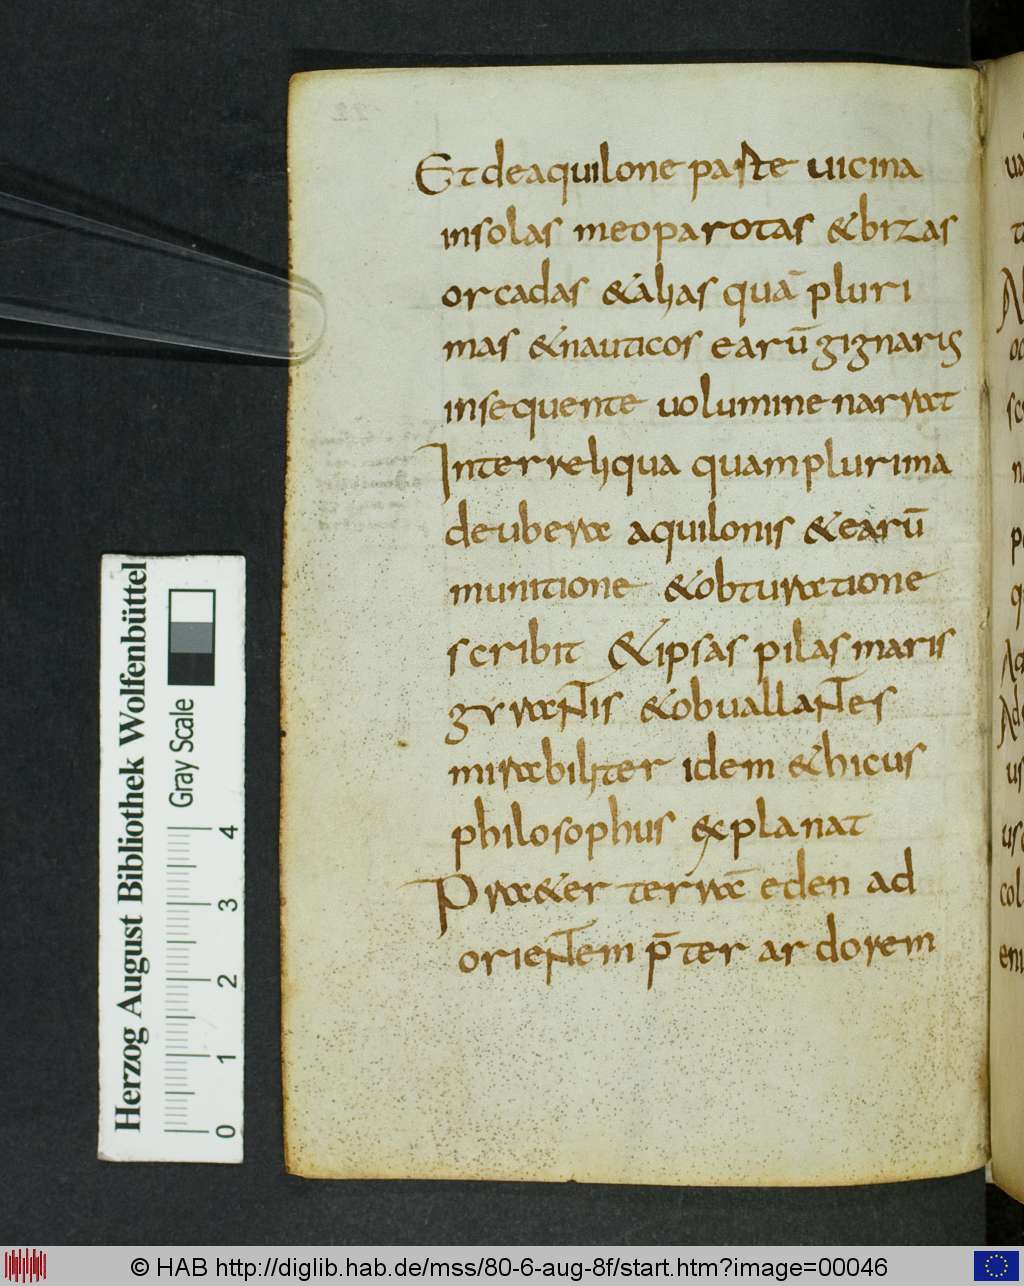 Et de aquilone parte uicina
insolas meoparotas & bizas
orcadas & alias quā pluri
mas & nauticos earū gignaris
insequente uolumine narrat
Inter reliqua quam plurima
de ubera aquilonis & earū
munitione & obturatione
scribit & ipsas pilas maris
grrantis & obuallantes
mirabiliter idem & hicus
philosophus &planat
Pra&er terrā eden ad
orientem p̄ter ardorem
Herzog August Bibliothek Wolfenbüttel
Gray Scale
0 1 2 3 4
© HAB http://diglib.hab.de/mss/80-6-aug-8f/start.htm?image=00046